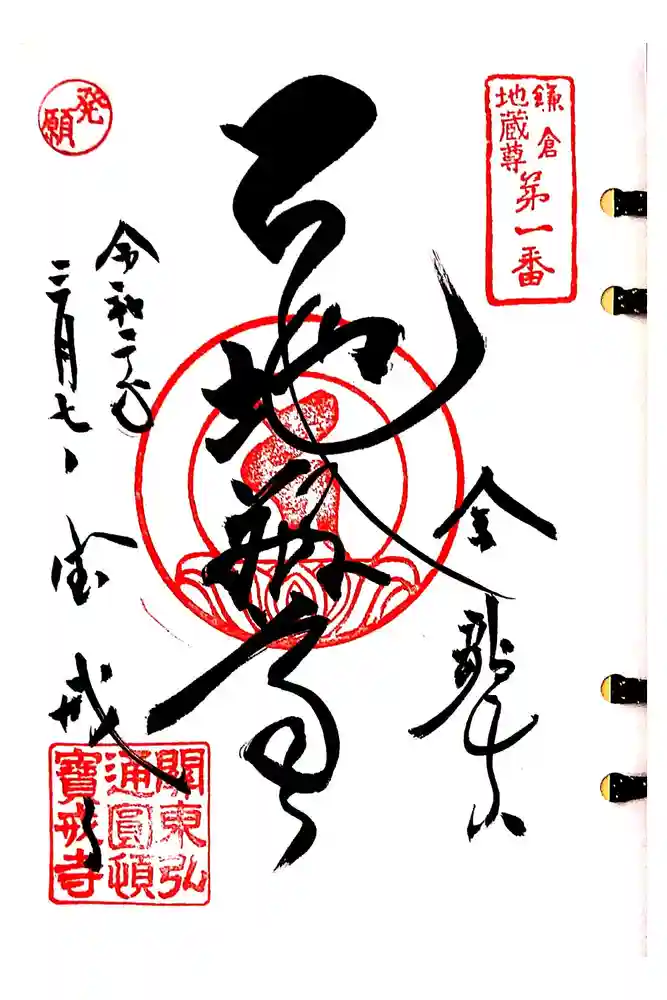 鎌倉
地蔵尊
第一番
金龍山
地蔵尊
発願
令和二年
三月七日
宝戒寺
關東弘
通圓頓
寶戒寺